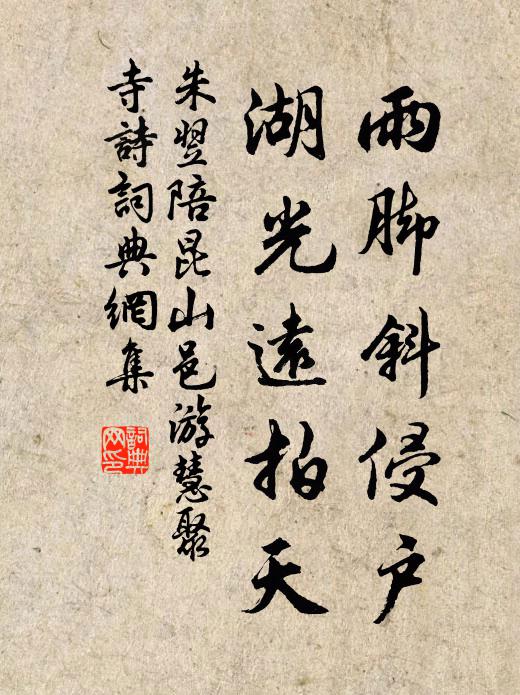 雨脚斜侵户
湖光遠拍天
朱翌陪昆山邑游慧聚
寺詩詞典網集
詞典
网印